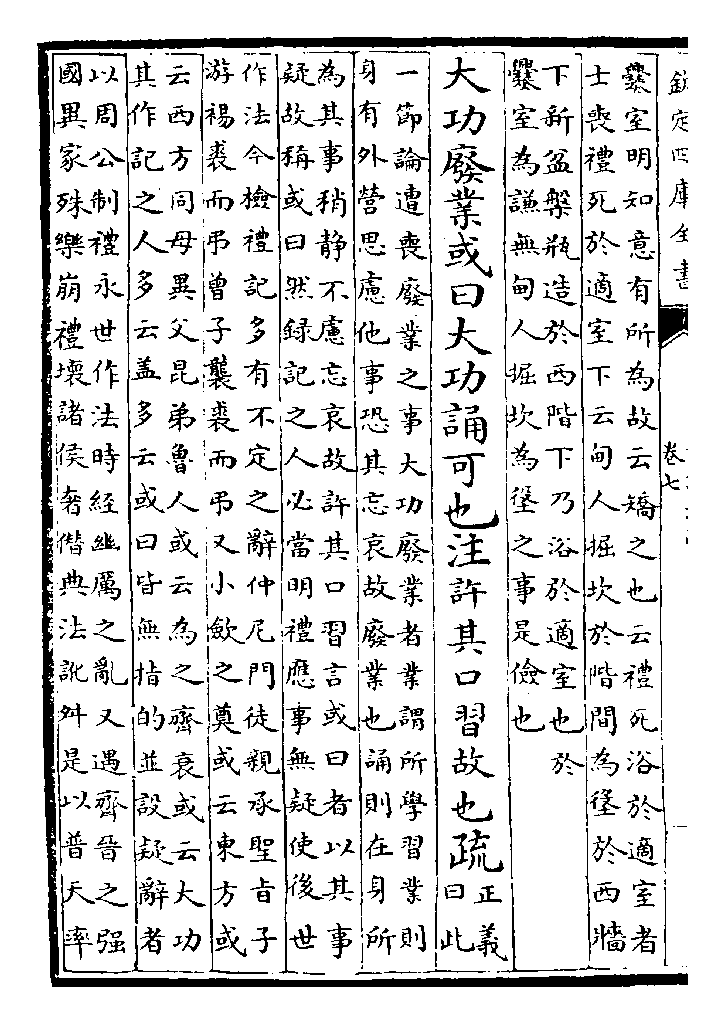 欽定四庫全書
卷七
爨室明知意有所為故云矯之也云禮死浴於適室者
士喪禮死於適室下云甸人掘坎於階間為垼於西牆
下新盆槃瓶造於西階下乃浴於適室也於
爨室為謙無甸人掘坎為垼之事是儉也
大功廢業或曰大功誦可也注許其口習故也疏
正義
曰此
一節論遭喪廢業之事大功廢業者業謂所學習業則
身有外營思慮他事恐其忘哀故廢業也誦則在身所
為其事稍静不慮忘哀故許其口習言或曰者以其事
疑故稱或曰然録記之人必當明禮應事無疑使後世
作法今檢禮記多有不定之辭仲尼門徒親承聖旨子
游裼裘而弔曾子襲裘而弔又小斂之奠或云東方或
云西方同母異父昆弟魯人或云為之齊衰或云大功
其作記之人多云盖多云或曰皆無指的並設疑辭者
以周公制禮永世作法時經幽厲之亂又遇齊晉之强
國異家殊樂崩禮壞諸侯奢僭典法訛舛是以普天率